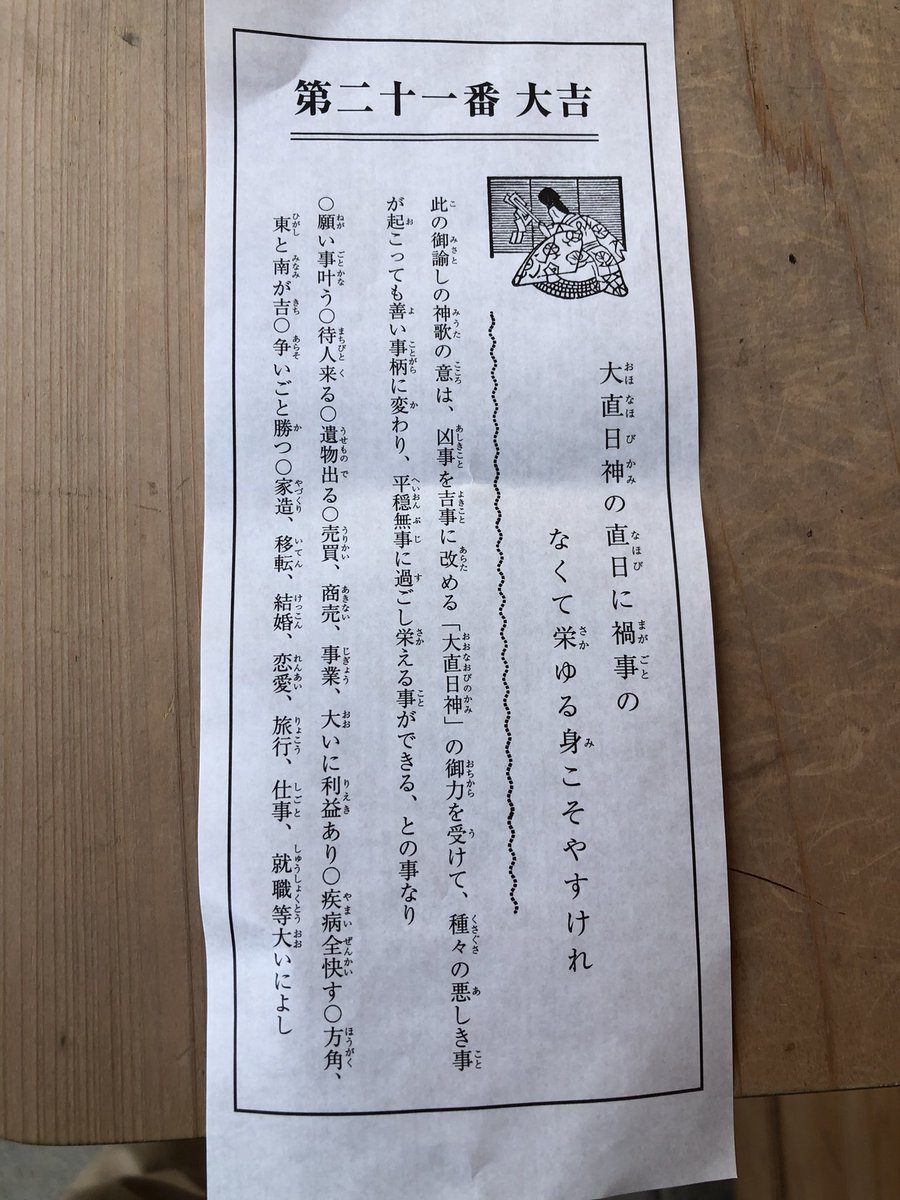 第二十一番 大吉
大直日神の直日に禍事の
なくて栄ゆる身こそやすけれ
此の御諭しの神歌の意は、凶事を吉事に改める「大直日神」の御力を受けて、種々の悪しき事
が起こっても善い事柄に変わり、平穏無事に過ごし栄える事ができる、との事なり
○願い事叶う○待人来る○遺物出る○売買、商売、事業、大いに利益あり○疾病全快す○方角、
東と南が吉○争いごと勝つ○家造、移転、結婚、恋愛、旅行、仕事、就職等大いによし